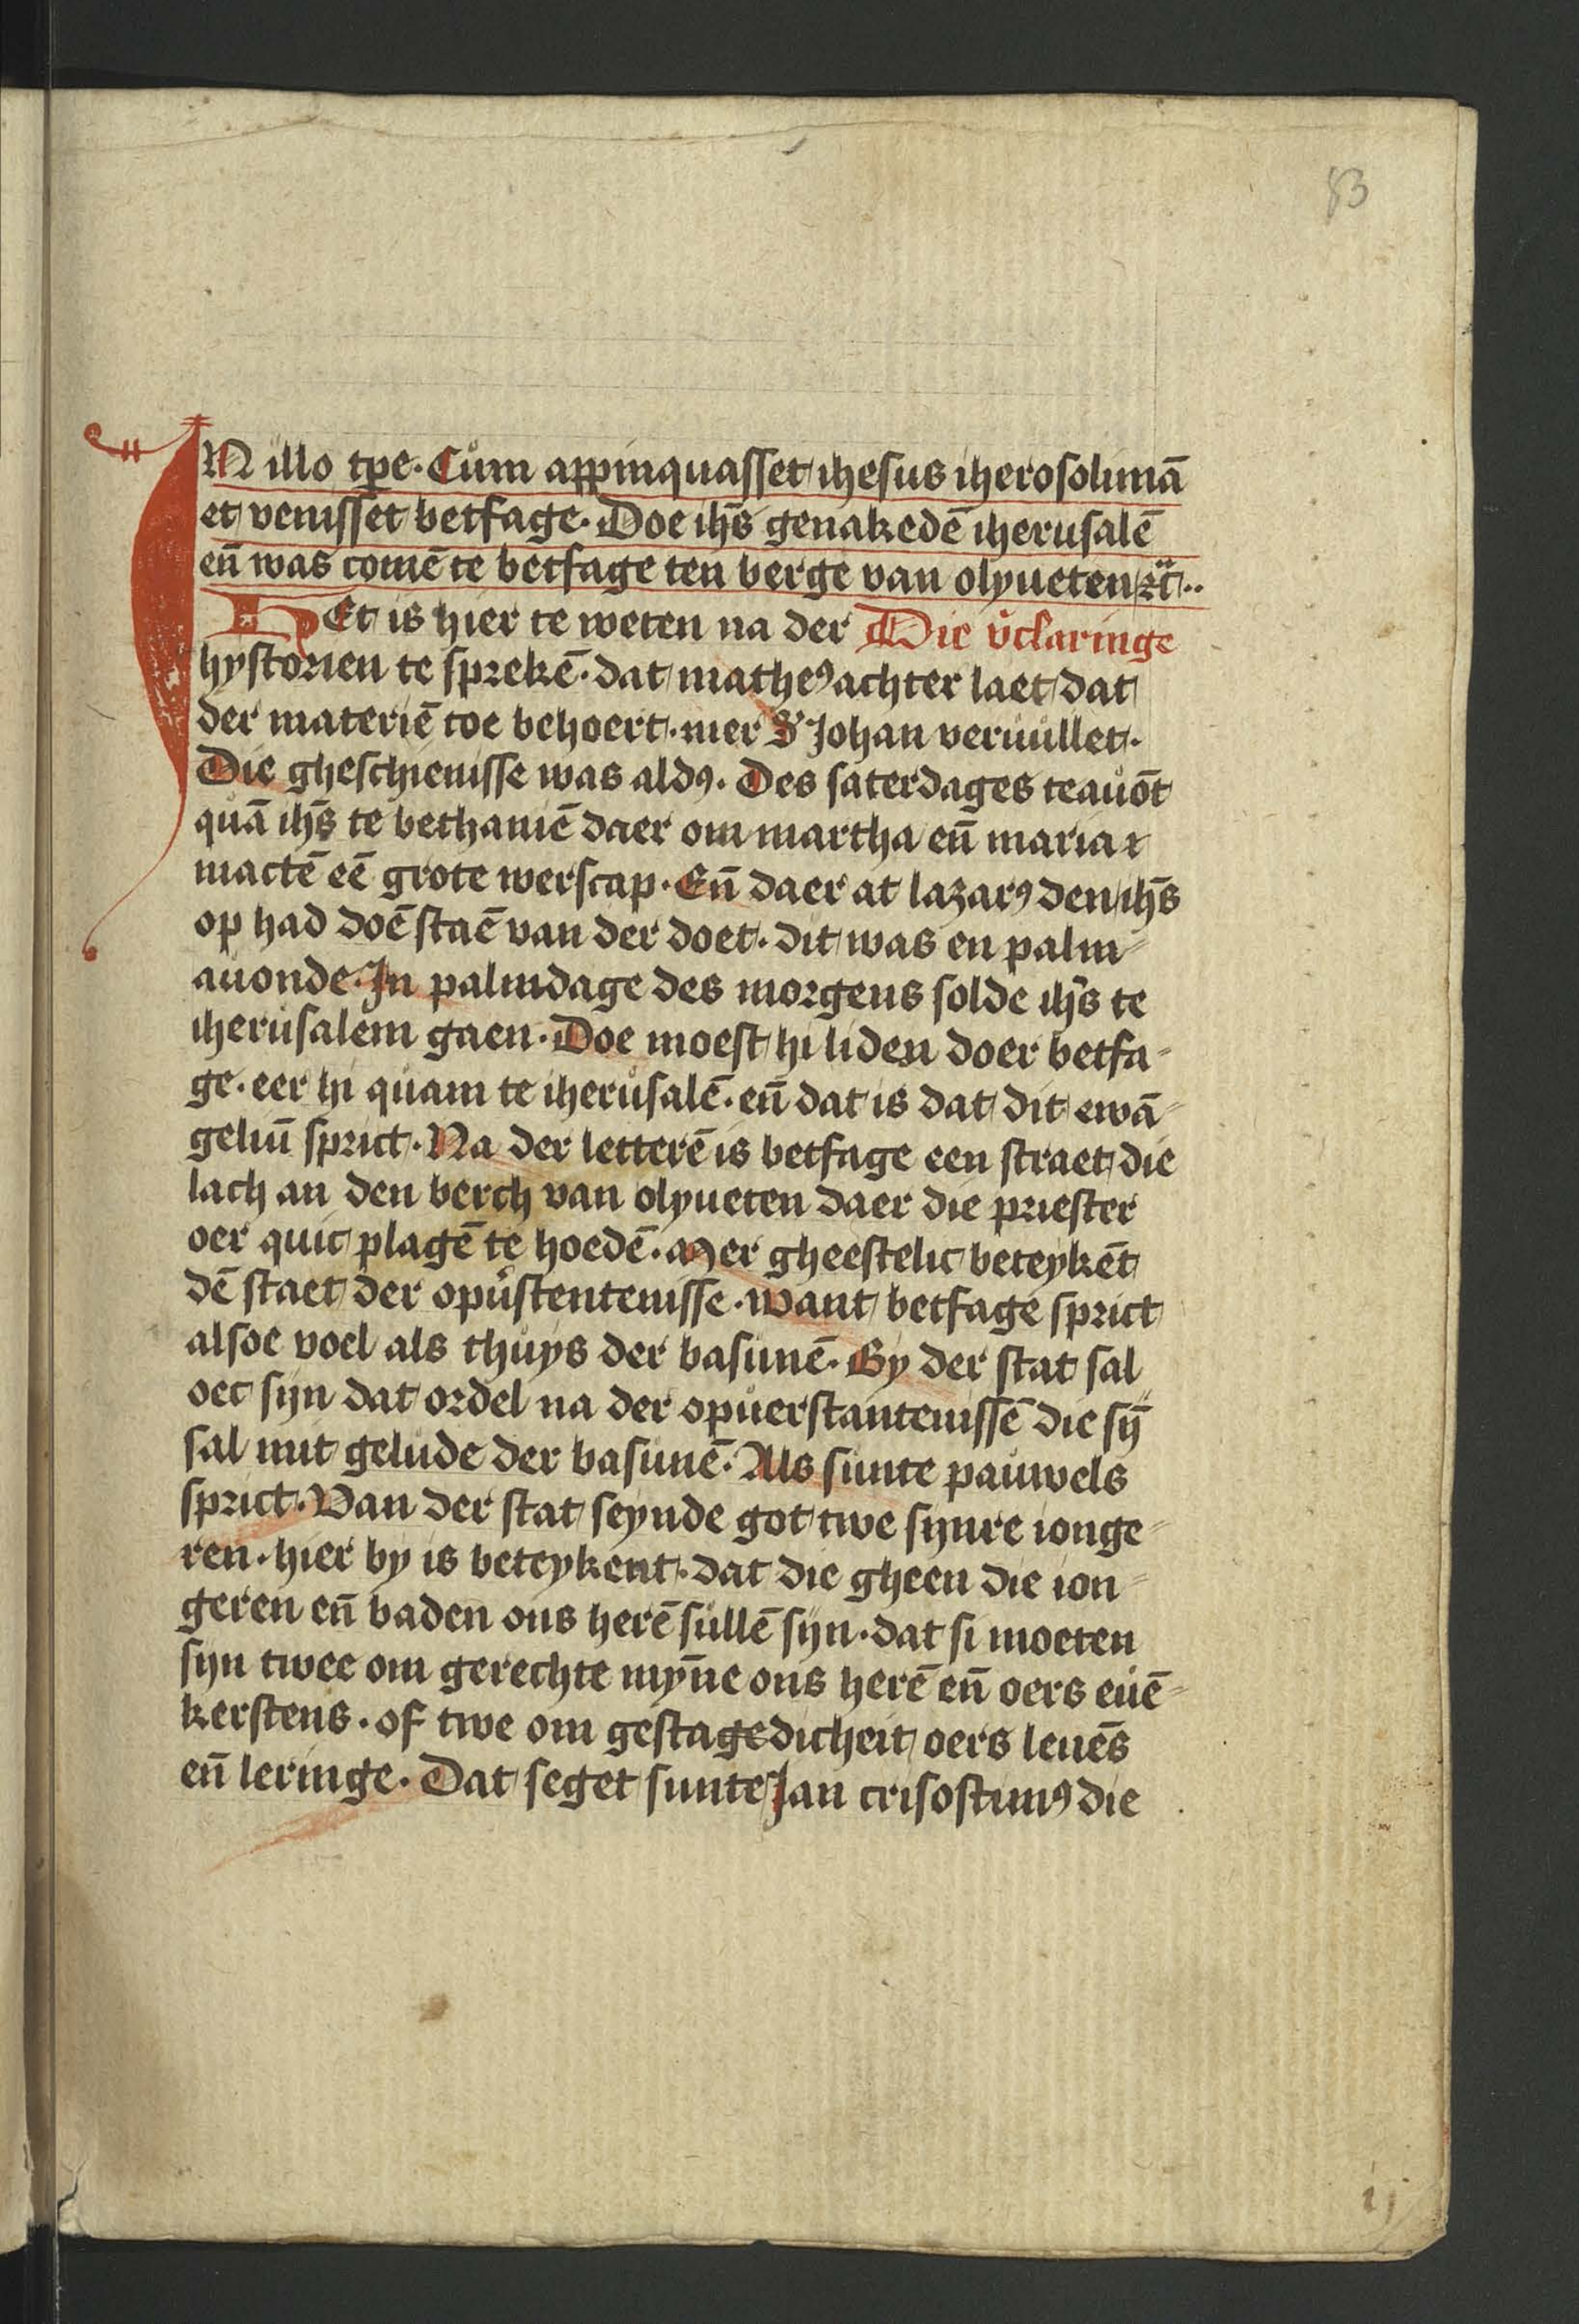 83
IN illo tp̄e · Cům app̄inquasset ihesus iherosolimā
et venisset betfage · Doe ih̄s genakedē iherusalē
en̄ was comē te betfage ten berge van olyueten ⁊c̄ ··
HEt is hier te weten na der Die v̄claringe
hystorien te sprekē · dat matheꝰ achter laet dat
der materiē toe behoert · mer S' Johan veruůllet ·
Die gheschienisse was aldꝰ · Des saterdages teauōt
quā ih̄s te bethaniē daer om martha en̄ maria
mactē eē grote werscap · En̄ daer at lazarꝰ den ih̄s
op had doē staē van der doet · dit was en palm⸗
auonde · In palmdage des morgens solde ih̄s te
iherusalem gaen · Doe moest hi liden doer betfa⸗
ge · eer hi quam te iherůsalē · en̄ dat is dat dit ewā⸗
geliū sprict · Na der letterē is betfage een straet die
lach an den berch van olyueten daer die priester
oer quic plagē te hoedē · Mer gheestelic beteykēt
dē staet der opůstentenisse · want betfage sprict
alsoe voel als thůys der basunē · By der stat sal
oec sijn dat ordel na der opůerstantenissē die sȳ
sal mit gelude der basunē · Als sunte pauwels
sprict · Van der stat seynde got twe synre ionge⸗
ren · hier by is beteykent · dat die gheen die ion⸗
geren en̄ baden ons herē sůllē sijn · dat si moeten
sijn twee om gerechte myn̄e ons herē en̄ oers euē⸗
kerstens · of twe om gestagedicheit oers leuēs
en̄ leringe · Dat seget sunte Jan crisostimꝰ die